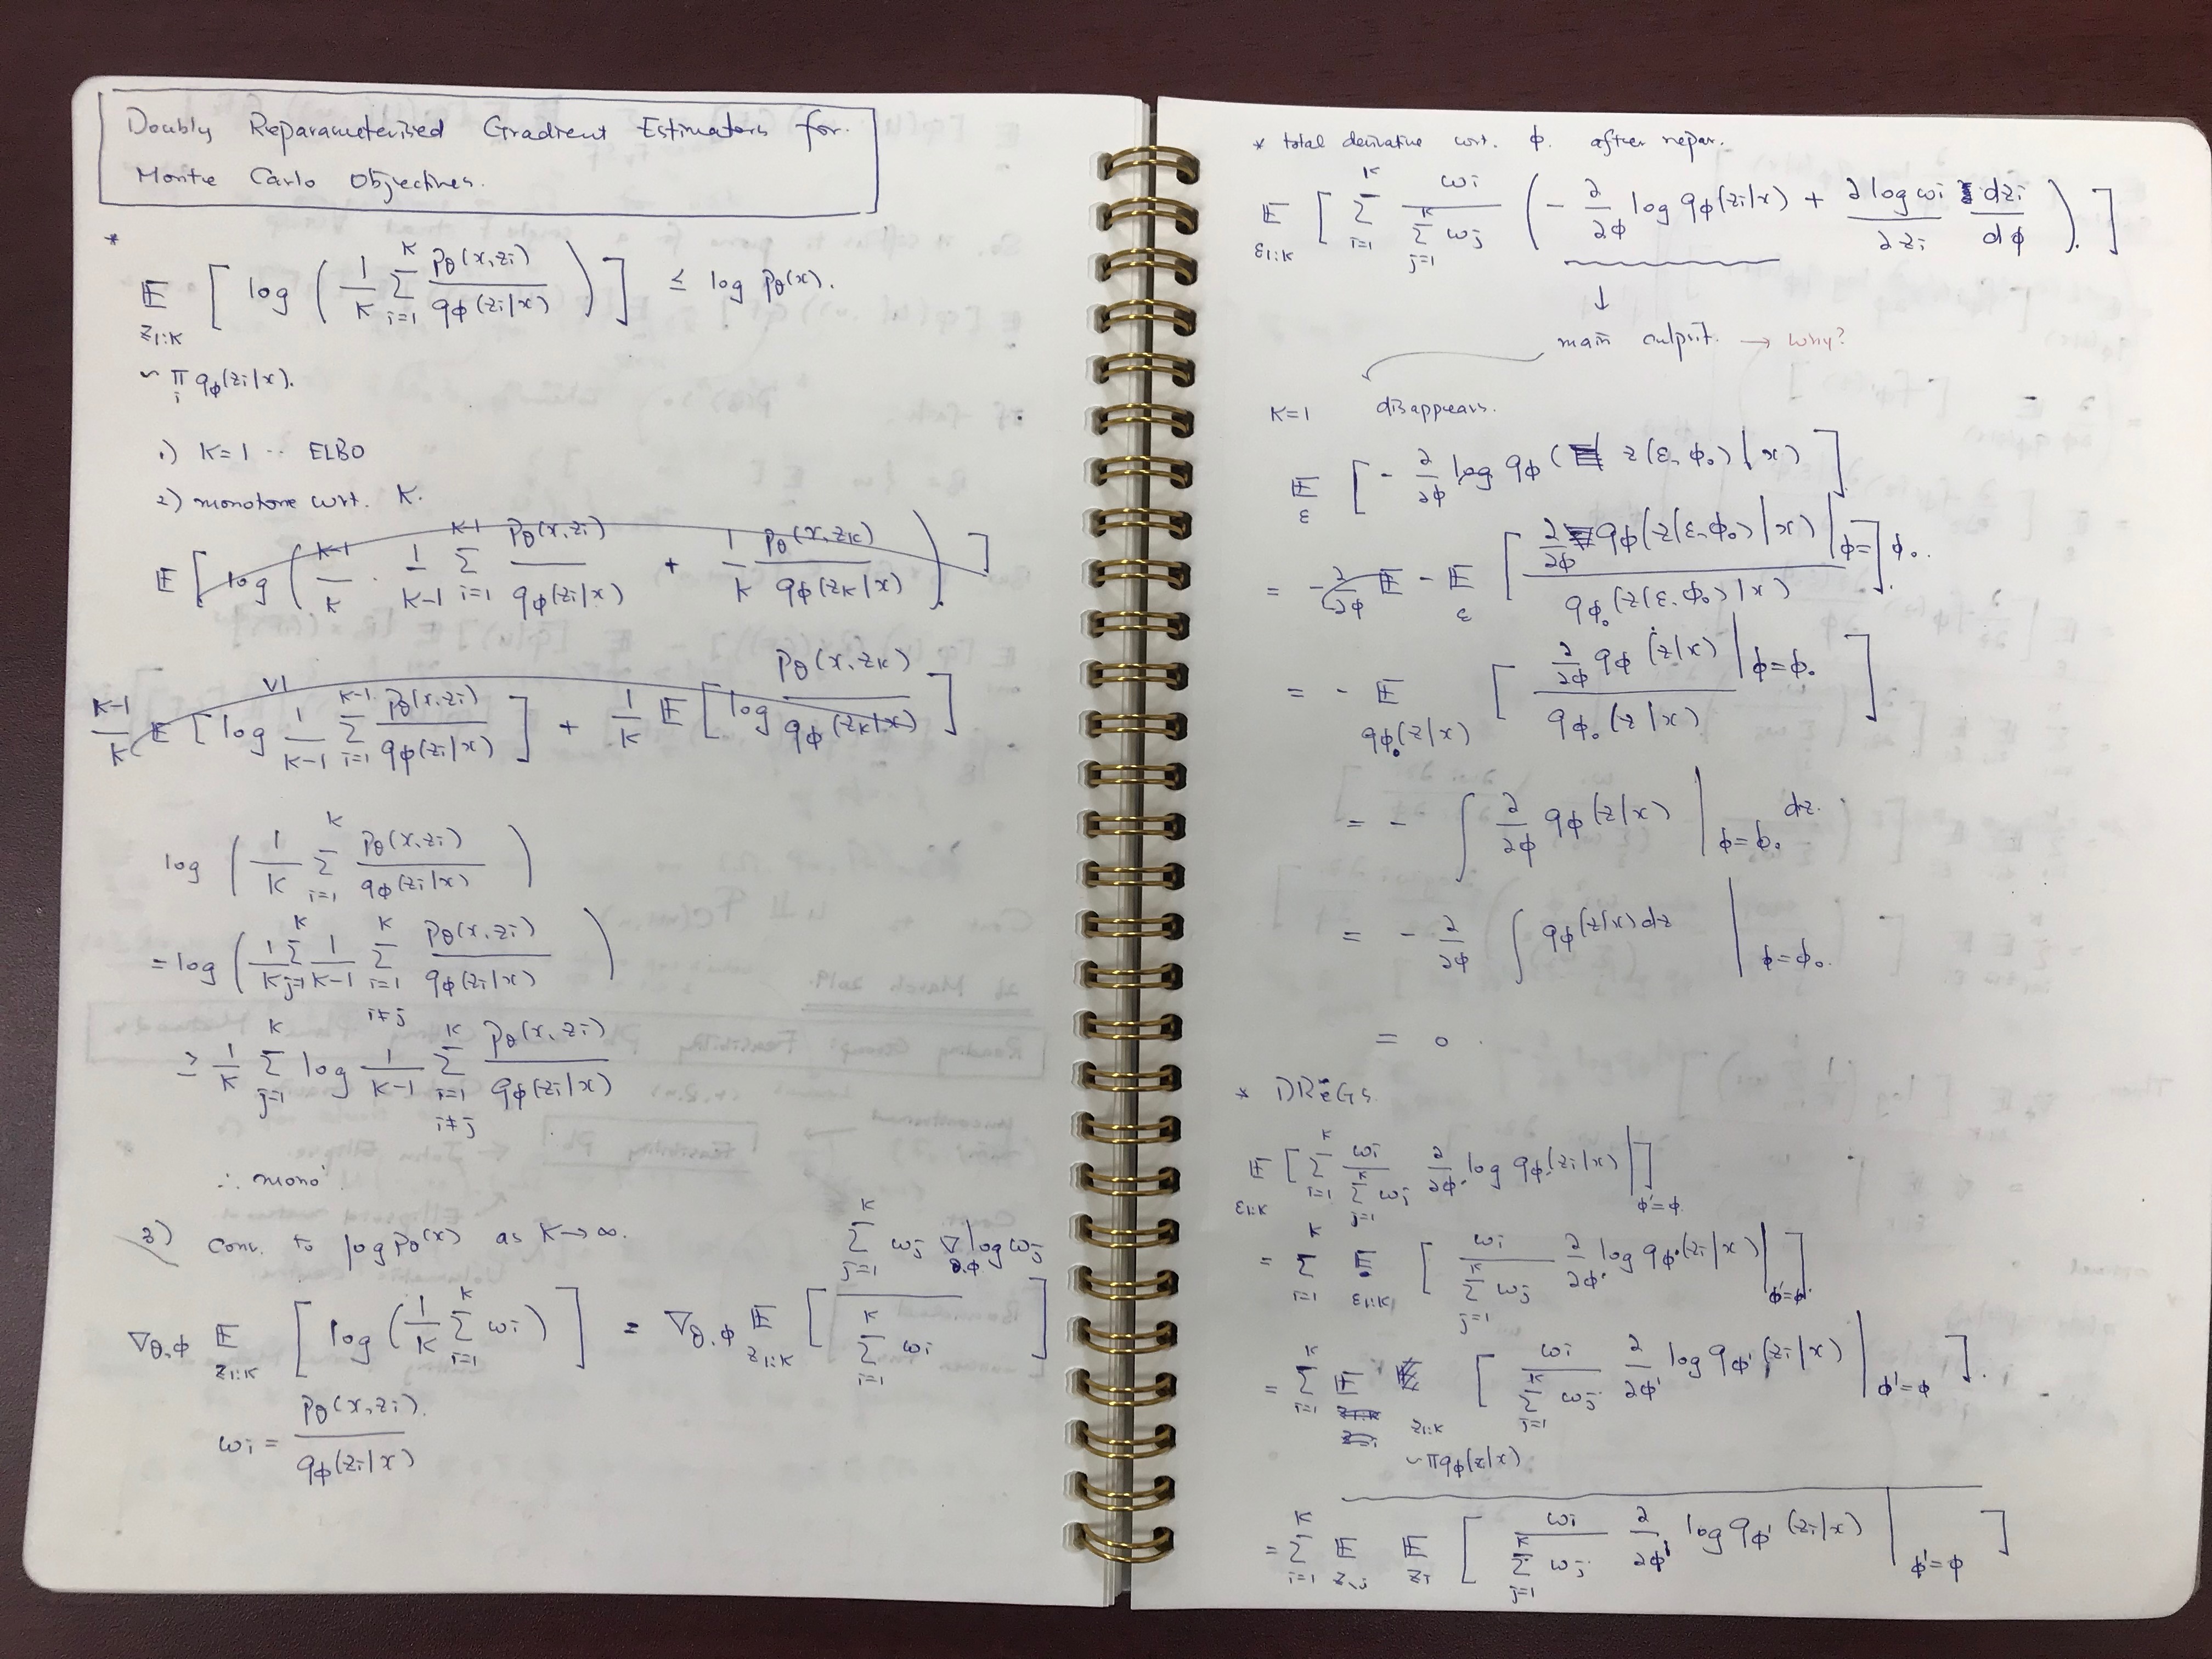 Doubly Reparameterised Gradient Estimators for.
Monte Carlo Objectives.
*
E_{z_{1:K} ~ ∏_i q_φ(z_i|x).} [ log ( 1/K Σ_{i=1}^{K} p_θ(x,z_i) / q_φ(z_i|x) ) ] ≤ log p_θ(x).
1) K=1 ·· ELBO
2) monotone wrt. K.
E [ log ( K-1/K · 1/K-1 Σ_{i=1}^{K-1} p_θ(x,z_i) / q_φ(z_i|x) + 1/K p_θ(x,z_K) / q_φ(z_K|x) ) ]
VI
K-1/K E [ log 1/K-1 Σ_{i=1}^{K-1} p_θ(x,z_i) / q_φ(z_i|x) ] + 1/K E [ log p_θ(x,z_K) / q_φ(z_K|x) ]
log ( 1/K Σ_{i=1}^{K} p_θ(x,z_i) / q_φ(z_i|x) )
= log ( 1/K Σ_{j=1}^{K} 1/K-1 Σ_{i=1, i≠j}^{K} p_θ(x,z_i) / q_φ(z_i|x) )
≥ 1/K Σ_{j=1}^{K} log 1/K-1 Σ_{i=1, i≠j}^{K} p_θ(x,z_i) / q_φ(z_i|x)
∴ mono'.
3) conv. to log p_θ(x) as K→∞.
∇_{θ,φ} E_{z_{1:K}} [ log ( 1/K Σ_{i=1}^{K} w_i ) ] = ∇_{θ,φ} E_{z_{1:K}} [ Σ_{j=1}^{K} w_j ∇_{θ,φ} log w_j / Σ_{i=1}^{K} w_i ]
w_i = p_θ(x,z_i). / q_φ(z_i|x)
* total derivative wrt. φ. after repar.
E_{ε_{1:K}} [ Σ_{i=1}^{K} w_i / Σ_{j=1}^{K} w_j ( - ∂/∂φ log q_φ(z_i|x) + ∂ log w_i / ∂z_i dz_i / dφ ). ]
↓
main culprit. → why?
K=1 disappears.
E_ε [ - ∂/∂φ log q_φ( z(ε,φ_0) | x) ]
= - ∂/∂φ E - E_ε [ ∂/∂φ q_φ(z(ε,φ_0)|x) |_{φ=φ_0} / q_{φ_0}(z(ε,φ_0)|x) ].
= - E_{q_{φ_0}(z|x)} [ ∂/∂φ q_φ(z|x) |_{φ=φ_0} / q_{φ_0}(z|x) ]
= - ∫ ∂/∂φ q_φ(z|x) |_{φ=φ_0} dz.
= - ∂/∂φ ∫ q_φ(z|x) dz |_{φ=φ_0}.
= 0.
* DReGs.
E_{ε_{1:K}} [ Σ_{i=1}^{K} w_i / Σ_{j=1}^{K} w_j ∂/∂φ' log q_{φ'}(z_i|x) | ]_{φ'=φ.}
= Σ_{i=1}^{K} E_{ε_{1:K}} [ w_i / Σ_{j=1}^{K} w_j ∂/∂φ' log q_{φ'}(z_i|x) |_{φ'=φ} ]
= Σ_{i=1}^{K} E_{z_{1:K} ~ ∏ q_φ(z|x)} [ w_i / Σ_{j=1}^{K} w_j ∂/∂φ' log q_{φ'}(z_i|x) |_{φ'=φ} ].
= Σ_{i=1}^{K} E E_{z_i} [ w_i / Σ_{j=1}^{K} w_j ∂/∂φ' log q_{φ'}(z_i|x) |_{φ'=φ} ]